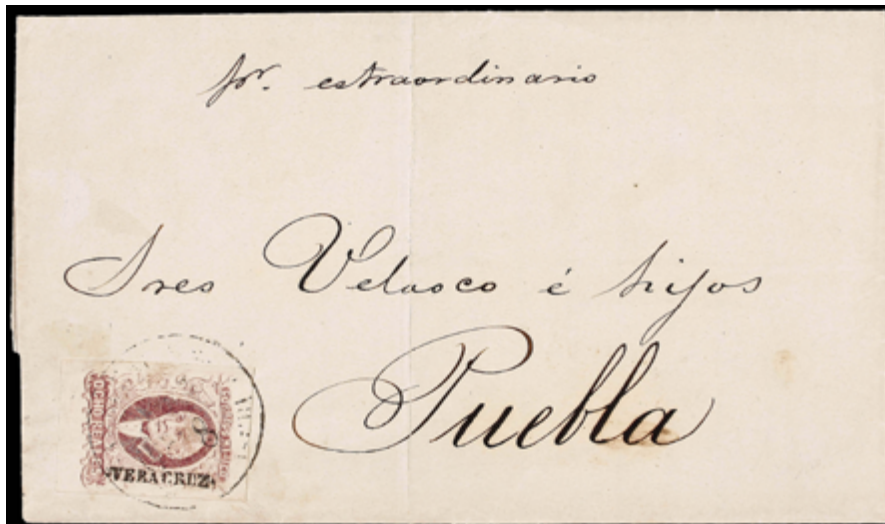 pr. estraordinario
Sres Velasco é hijos
Puebla
OCHO REALES
VERACRUZ